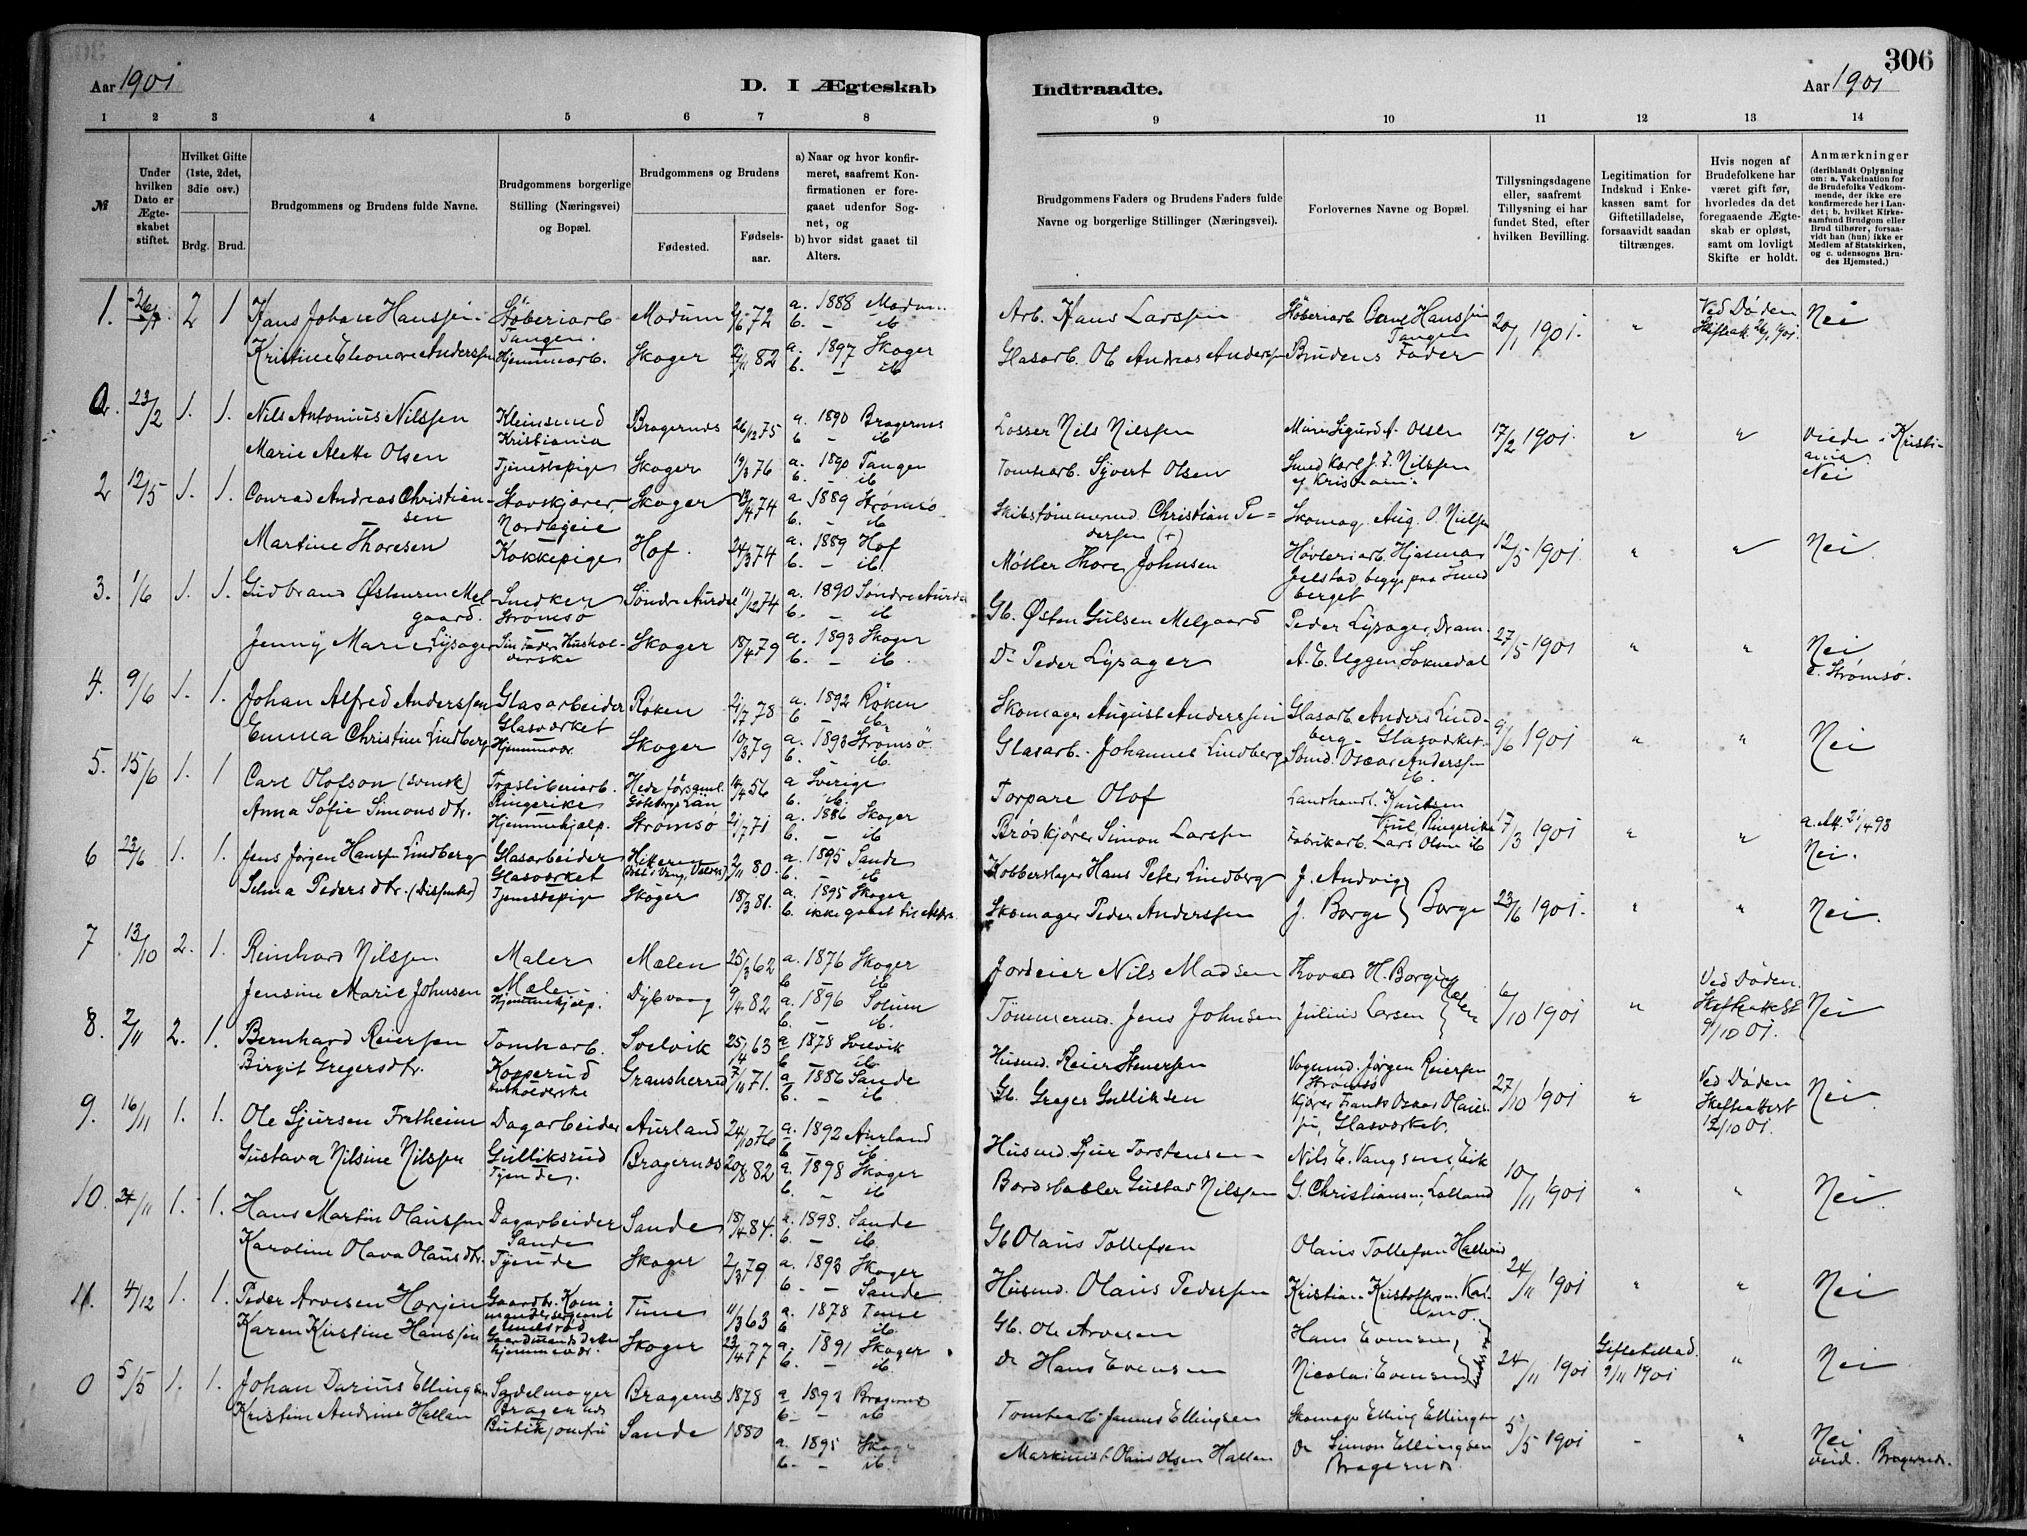 306
Aar 1901
D. I Ægteskab
Indtraadte.
Aar 1901
1 2 3 4 5 6 7 8
9 10 11 12 13 14
№
Under hvilken Dato er Ægteskabet stiftet.
Hvilket Gifte (1ste, 2det, 3die osv.)
Brdg. Brud.
Brudgommens og Brudens fulde Navne.
Brudgommens borgerlige Stilling (Næringsvei) og Bopæl.
Brudgommens og Brudens
Fødested. Fødselsaar.
a) Naar og hvor konfirmeret, saafremt Konfirmationen er foregaaet udenfor Sognet, og
b) hvor sidst gaaet til Alters.
Brudgommens Faders og Brudens Faders fulde Navne og borgerlige Stillinger (Næringsvei).
Forlovernes Navne og Bopæl.
Tillysningsdagene eller, saafremt Tillysning ei har fundet Sted, efter hvilken Bevilling.
Legitimation for Indskud i Enkekassen samt for Giftetilladelse, forsaavidt saadan tiltrænges.
Hvis nogen af Brudefolkene har været gift før, hvorledes da det foregaaende Ægteskab er opløst, samt om lovligt Skifte er holdt.
Anmærkninger (deriblandt Oplysning om: a. Vakcination for de Brudefolks Vedkommende, der ikke ere konfirmerede her i Landet; b. hvilket Kirkesamfund Brudgom eller Brud tilhører, forsaavidt han (hun) ikke er Medlem af Statskirken, og c. udensogns Brudes Hjemsted.)
1. 26/1 2 1 Hans Johan Hanssen Støberiarb. Modum 72 a. 1888 Modum
Tangen. b. — ib
Kristine Eleonore Anderssen Hjemmearb. Skoger 82 a. 1897 Skoger
b. — ib
Arb. Hans Larssen Støberiarb Hanssen 20/1 1901. " Ved Døden Nei
Tangen
Glasarb. Ol Andreas Anderssen Brudens Fader
0. 23/2 1. 1. Nils Antonius Nilssen Kleinsmed Bragernes 26/12 75 a. 1890 Bragernes
Kristiania b — ib
Marie Alette Olsen Tjenestepige Skoger 76 a. 1890 Tangen
b. — ib
Losser Nils Nilssen Murer Sigurd A. Olsen 17/2 1901. " " viede i Kristiania
Tomtearb. Syvert Olsen Smed Karl J. F. Nilssen Nei
af Kristiania
2 12/5 1. 1. Conrad Andreas Christiansen Skoger 74 a. 1889 Strømsø
Nordbyeie b. — ib
Martine Thoresen Kokkepige Hof. 24/3 74 a. 1889 Hof
b. — ib.
Skibstømmermd. Christian Pedersen (+) Skomag. Aug. O. Nielsen
Møller Thore Johnsen Høvleriarb. Hjalmar 12/5 1901 " " Nei
Jelstad, begge paa Sundberget
3. 1/6 1. 1. Gudbrand Østensen Melgaard. Snedker Søndre Aurdal 11/12 74 a. 1890 Søndre Aurdal
Strømsø b. — ib
Jenny Marie Lysager Sin Faders Husholderske Skoger 18/4 79 a. 1893 Skoger
b. — ib.
Gb. Østen Gulsen Melgaard Peder Lysager, Dram.
Do Peder Lysager A. E. Uggen, Soknedal 27/5 1901 " " Nei
c. Strømsø.
4. 9/6 1. 1. Johan Alfred Anderssen Glasarbeider Røken 21/7 78 a. 1892 Røken
Glasværket b — ib.
Emma Christine Lindberg Hjemmevær. Skoger 10/3 79 a. 1893 Strømsø
b. — ib.
Skomager August Anderssen Glasarb. Anders Lindberg. Glasværket. 9/6 1901 " " Nei
Glasarb. Johannes Lindberg Smd. Oscar Anderssen
ib.
5. 15/6 1. 1 Carl Olofson (svensk) Træsliberiarb. Hede församl. 14/4 56 a Sverige
Ringerike Göteborgs Län b. ib.
Anna Sofie Simonsdtr. Hjemmehjælp. Strømsø 21/7 71 a. 1886 Skoger
b. — ib
Torpare Olof Landhandl. Knutsen
Viul, Ringerike 17/3 1901 " "
Brødkjører Simon Larssen Fabrikarb. Lars Olsen ib Nei.
6 23/6 1. 1. Jens Jørgen Hanssen Lindberg Glasarbeider 2/11 80. a. 1895 Sande
Glasværket b. — ib.
Selma Pedersdtr. (Dispenks) Tjenestepige Skoger 18/3 81. a. 1895 Skoger
b. ikke gaaet til Alters
Kobberslager Hans Peter Lindberg J. Andvig
Skomager Peder Anderssen J. Borge } Borge 23/6 1901. " " Nei.
7 13/10 2. 1. Reinhard Nilssen Maler Mælen 25/3 62 a. 1876 Skoger
Mælen b — ib
Jensine Marie Johnsen Hjemmehjælp. Dybvaag 9/4 82 a. 1896 Solum
b. — ib.
Jordeier Nils Madsen Thovald H. Borge
Tømmermd. Jens Johnsen Julius Larsen 6/10 1901 " Ved Døden. Nei
Skifteattest 9/10 01.
8. 2/11 2. 1. Bernhard Reiersen Tomtearb. Svelvik 25/4 63 a 1878 Svelvik
Kopperud b — ib
Birgit Gregersdtr. Husholderske Gransherred 7/11 71. a 1886 Sande
b. — ib
Husmd. Reier Stenersen Vognmd. Jørgen Reiersen
Strømsø
Gb. Greger Gulliksen Kjører Frants Oskar Olaussen, Glasværket. 27/10 1901 " Ved Døden Nei.
Skifteattest 12/10 01.
9. 16/11 1. 1. Ole Sjursen Fretheim Dagarbeider Aurland 24/10 76 a. 1892 Aurland
Gulliksrud b — ib
Gustava Nilsine Nilssen Tjende. Bragernes 20/8 82 a. 1898 Skoger
b. — ib
Husmd. Sjur Torstensen Nils E. Vangsnes, Eik
Bordstabler Gustav Nilssen G. Christiansen, Lolland 10/11 1901 " " Nei.
10. 24/11 1. 1. Hans Martin Olaussen Dagarbeider Sande 18/4 84. a. 1898. Sande
Sande b — ib.
Karoline Olava Olausdtr. Tjende Skoger 2/3 79 a. 1893 Skoger
b. — Sande
Gb Olaus Tollefsen Olaus Tollefsen Hallerud
Husmd. Olaus Pedersen Kristian Kristoffersen 24/11 1901 " " Nei
11. 4/12 1. 1. Peder Arvesen Horjen Gaardbr. Kommandersergeant Time 11/3 63 a. 1878 Time
b ib.
Karen Kirstine Hanssen Gaardmandsdatter hjemmevær. Skoger 23/4 77 a. 1891 Skoger
b. — ib
Gb. Ole Arvesen Hans Evensen,
do Hans Evensen Nicolai Evensen 24/11 1901 Giftetillad. 9/11 1901 " Nei
0 5/5 1. 1. Johan Darius Ellingsen Sadelmager Bragernes 1878 a 1892 Bragernes
Bragernes b. — ib
Kristine Andrine Hallan Butikjomfru Sande 1880 a. 1895 Skoger
b. — ib.
Tomtearb. Ellingsen Skomager Elling Ellingsen
do Simon Ellingsen 5/5 1901 - " Nei
Maskinist Olaus Olsen Hallan Bragernes viede. Bragernes.